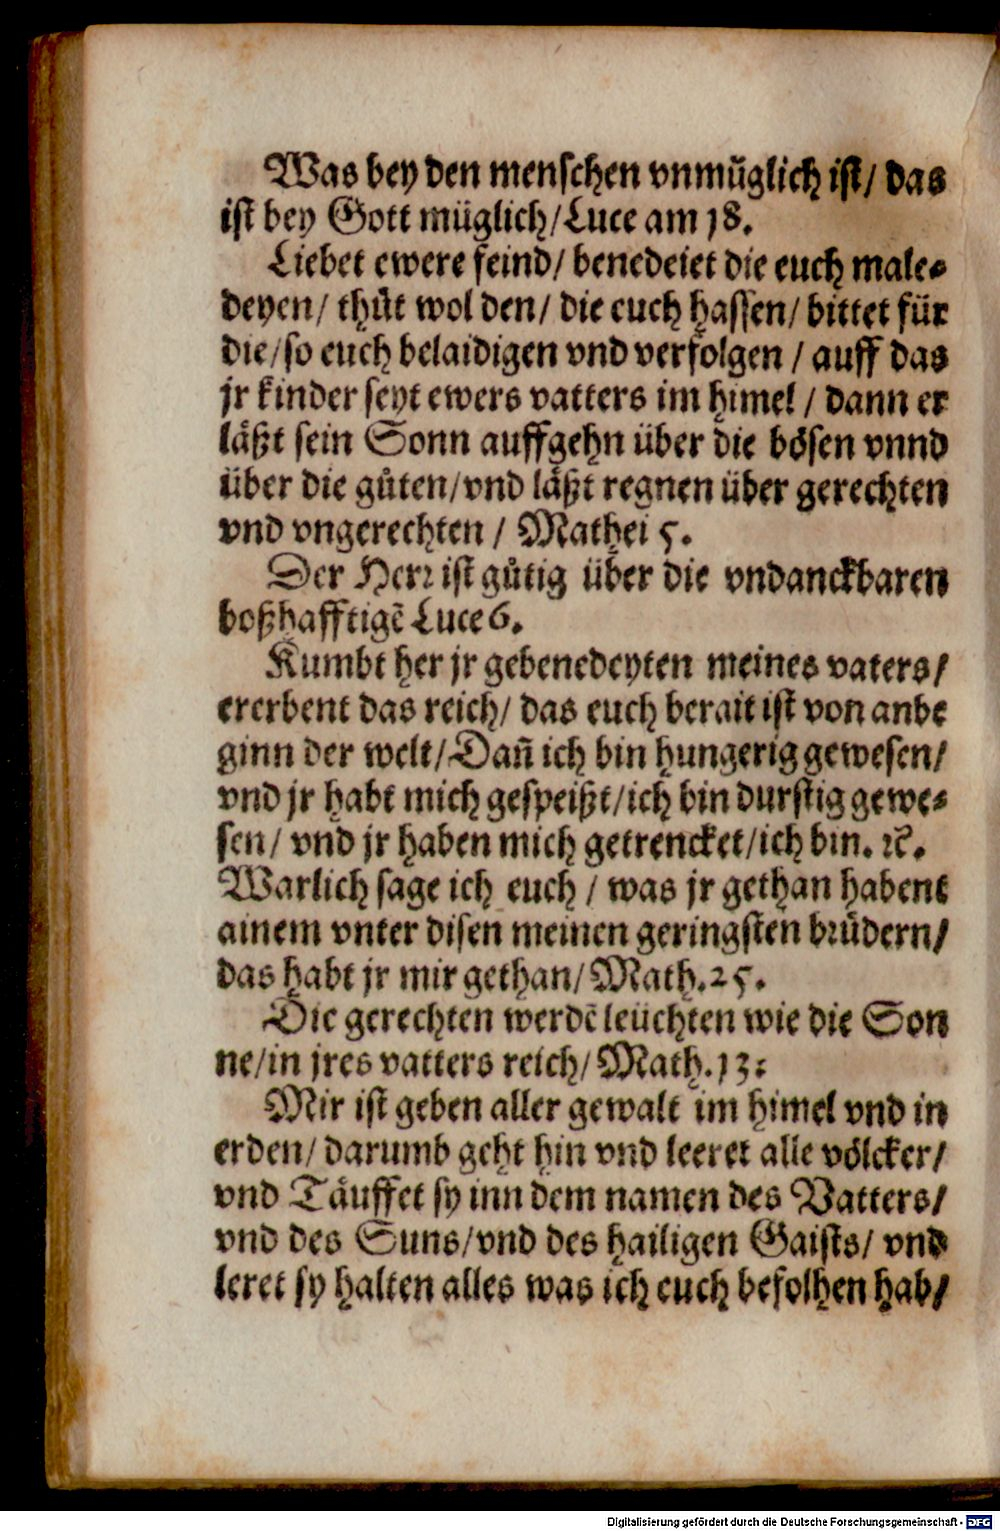 Was bey den menschen vnmüglich ist/ das
ist bey Gott müglich/Luce am 18.
Liebet ewere feind/ benedeiet die euch male⸗
deyen/ thůt wol den/ die euch hassen/ bittet für
die/so euch belaidigen vnd verfolgen / auff das
jr kinder seyt ewers vatters im himel / dann er
läßt sein Sonn auffgehn über die bösen vnnd
über die gůten/vnd läßt regnen über gerechten
vnd vngerechten / Mathei 5.
Der Herr ist gůtig über die vndanckbaren
boßhafftigē Luce 6.
Kumbt her jr gebenedeyten meines vaters/
ererbent das reich/ das euch berait ist von anbe
ginn der welt/Dañ ich bin hungerig gewesen/
vnd jr habt mich gespeißt/ich bin durstig gewe⸗
sen/ vnd jr haben mich getrencket/ich bin. ꝛc̄.
Warlich sage ich euch / was jr gethan habent
ainem vnter disen meinen geringsten brůdern/
das habt jr mir gethan/Math.25.
Die gerechten werdē leüchten wie die Son
ne/in jres vatters reich/Math.13:
Mir ist geben aller gewalt im himel vnd in
erden/ darumb geht hin vnd leeret alle völcker/
vnd Täuffet sy inn dem namen des Vatters/
vnd des Suns/vnd des hailigen Gaists/ vnd
leret sy halten alles was ich euch befolhen hab/
Digitalisierung gefördert durch die Deutsche Forschungsgemeinschaft - DFG